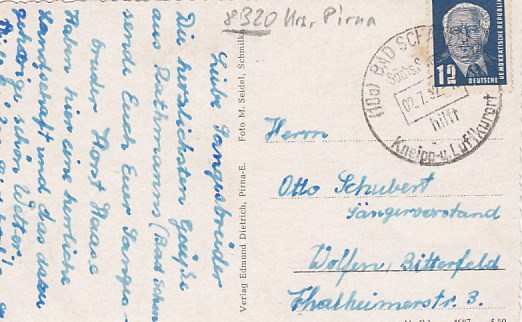 8320 Krs. Pirna
Liebe Sangesbrüder
Die herzlichsten Grüße
aus Rathmannsdorf (Bad Schan
sende Euch Euer Sanges-
bruder Horst Haase
Haben hier eine herrliche
Landschaft und das dazu
gehörige schöne Wetter.
Verlag Edmund Dietrich, Pirna-E.
Foto M. Seidel, Schmilka
(10a) BAD SCHANDAU
02.7.52
hilft
Kneipp- u Luftkurort
12
DEUTSCHE
DEMOKRATISCHE REPUBLIK
Herrn
Otto Schubert
Sängervorstand
Wolfen, Bitterfeld
Thalheimerstr. 3.